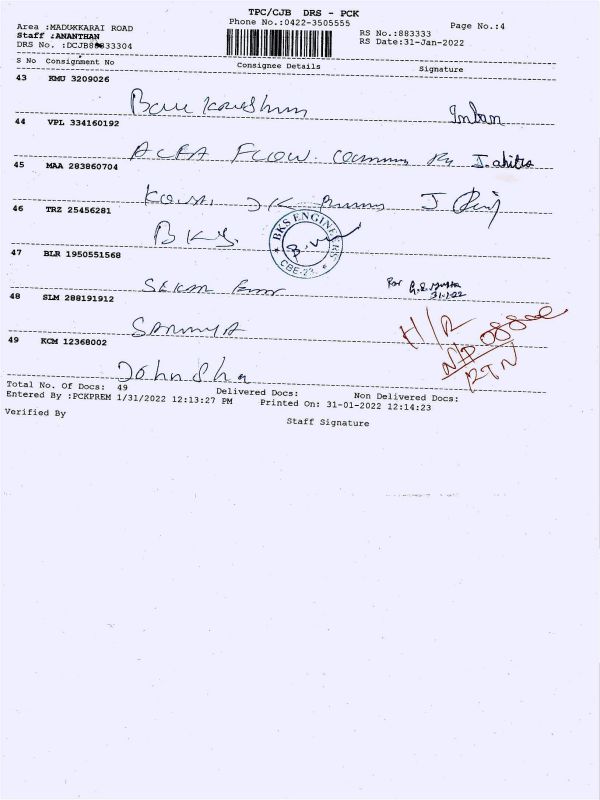 TPC/CJB DRS - PCK
Area :MADUKKARAI ROAD
Phone No.:0422-3505555
Page No.:4
Staff :ANANTHAN
RS No.:883333
DRS No. :DCJB88833304
RS Date:31-Jan-2022
S No Consignment No Consignee Details Signature
43 KMU 3209026
Inban
44 VPL 334160192
ALFA FLOW
45 MAA 283860704
J.
46 TRZ 25456281
BKS
BKS ENGINEERS
CBE-23.
47 BLR 1950551568
SEKAR
31-1-22
48 SLM 288191912
H/R
SARANYA
N/P
49 KCM 12368002
RTN
John Sha
Total No. Of Docs: 49 Delivered Docs: Non Delivered Docs:
Entered By :PCKPREM 1/31/2022 12:13:27 PM Printed On: 31-01-2022 12:14:23
Verified By
Staff Signature